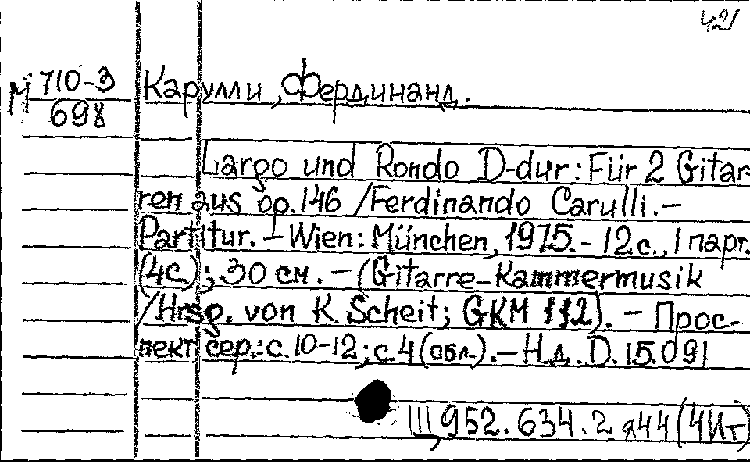 421
М 710-3
698
Карулли, Фердинанд.
Largo und Rondo D-dur: Für 2 Gitar-
ren aus op. 146 /Ferdinando Carulli.-
Partitur. - Wien: München, 1975.- 12 с., 1 парт.
(4с); 30 см. - (Gitarre-Kammermusik
/Hrsg. von K. Scheit; GKM 112). - Прос-
пект сер.: с. 10-12; с. 4 (обл.). - Н.д. D. 15.091
III, 952. 634. 2 я44 (4Ит)